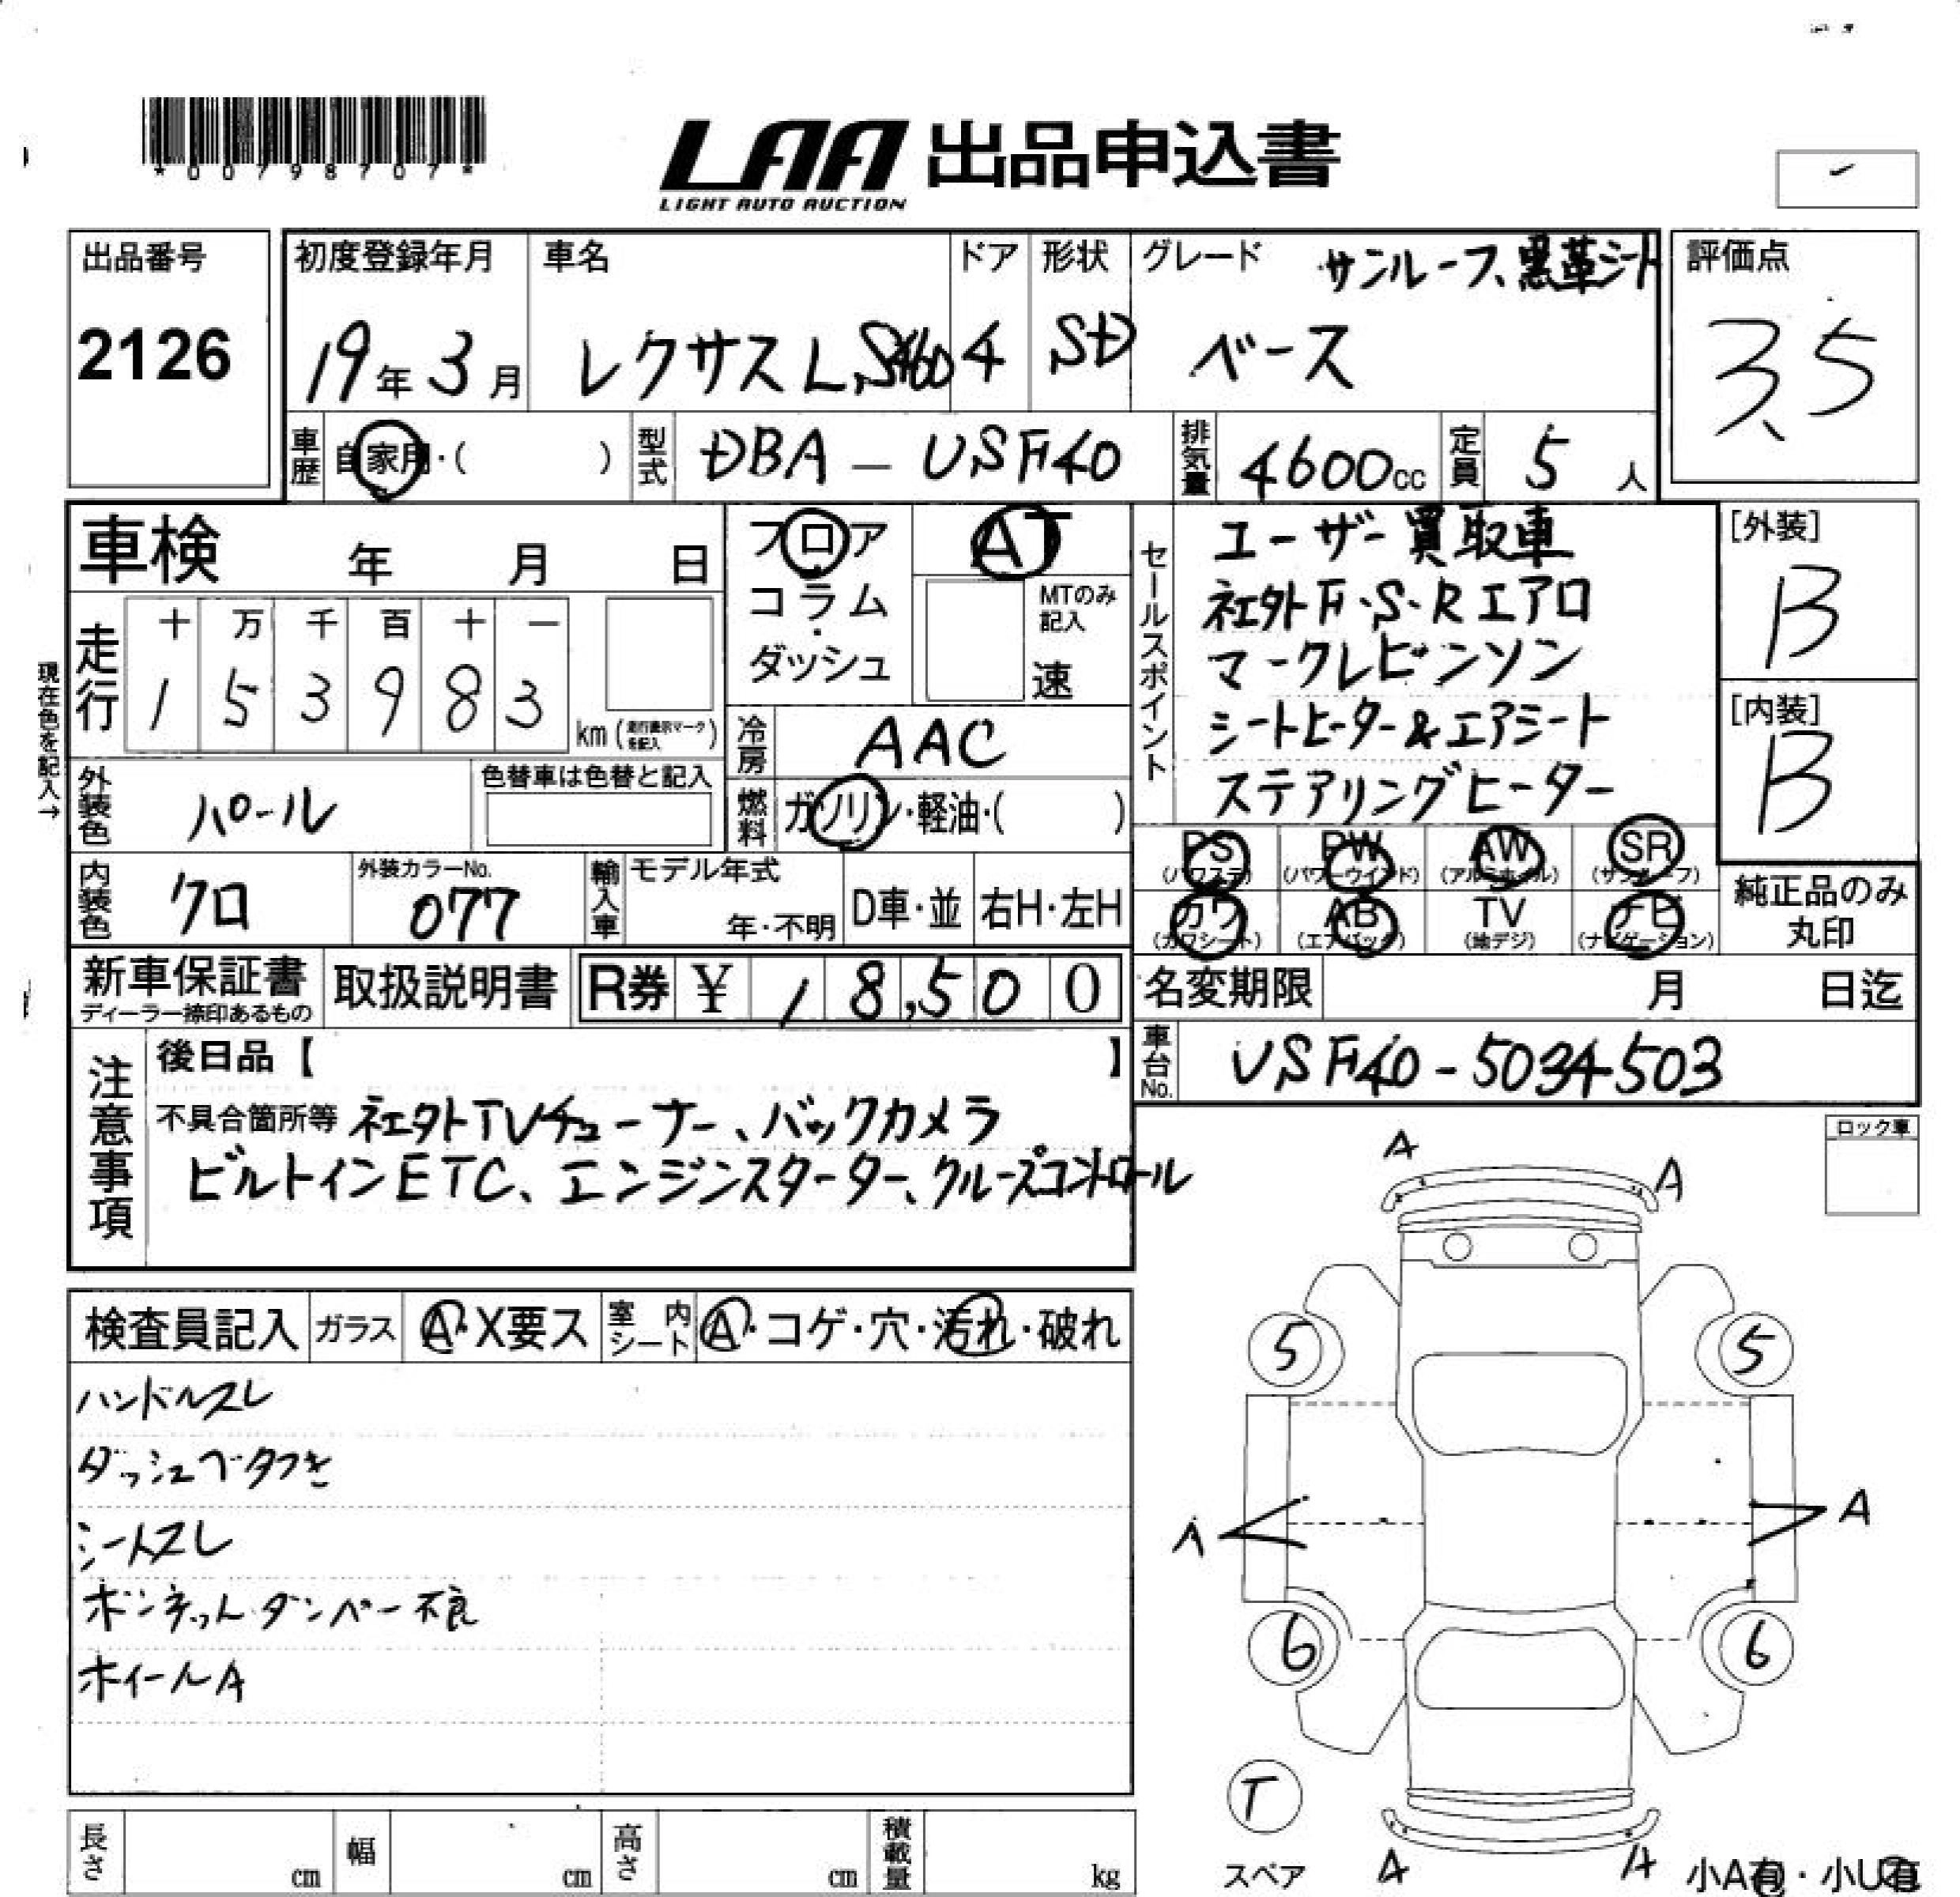 *00798707*
LAA 出品申込書
LIGHT AUTO AUCTION
出品番号
2126
初度登録年月
19年3月
車名
レクサス LS460
ドア
4
形状
SD
グレード サンルーフ、黒革シート
ベース
評価点
3.5
車歴 自家用・( )
型式 DBA-USF40
排気量 4600cc
定員 5人
車検 年 月 日
フロア
コラム
・
ダッシュ
AT
MTのみ
記入
速
走行
十 万 千 百 十 一
1 5 3 9 8 3 km
現在色を記入→
冷房 AAC
燃料 ガソリン・軽油・( )
外装色 パール
色替車は色替と記入
内装色 クロ
外装カラーNo.
077
輸入車
モデル年式
年・不明
D車・並
右H・左H
セールスポイント
ユーザー買取車
社外F・S・Rエアロ
マークレビンソン
シートヒーター&エアシート
ステアリングヒーター
[外装]
B
[内装]
B
PS PW AW SR
(パワステ) (パワーウインド) (アルミホイル) (サンルーフ)
カワ AB TV ナビ
(カワシート) (エアバック) (地デジ) (ナビゲーション)
純正品のみ
丸印
新車保証書
ディーラー捺印あるもの
取扱説明書
R券 ¥ 18,500
名変期限 月 日迄
車台No. USF40-5034503
注意事項
後日品【 】
不具合箇所等 社外TVチューナー、バックカメラ
ビルトインETC、エンジンスターター、クルーズコントロール
ロック車
検査員記入
ガラス A・X要ス
室内シート A・コゲ・穴・汚れ・破れ
ハンドルスレ
ダッシュベタつき
シートスレ
ボンネットダンパー不良
ホイールA
A
A
5
5
A
A
6
6
T
スペア
A
A
小A有・小U有
長さ cm
幅 cm
高さ cm
積載量 kg